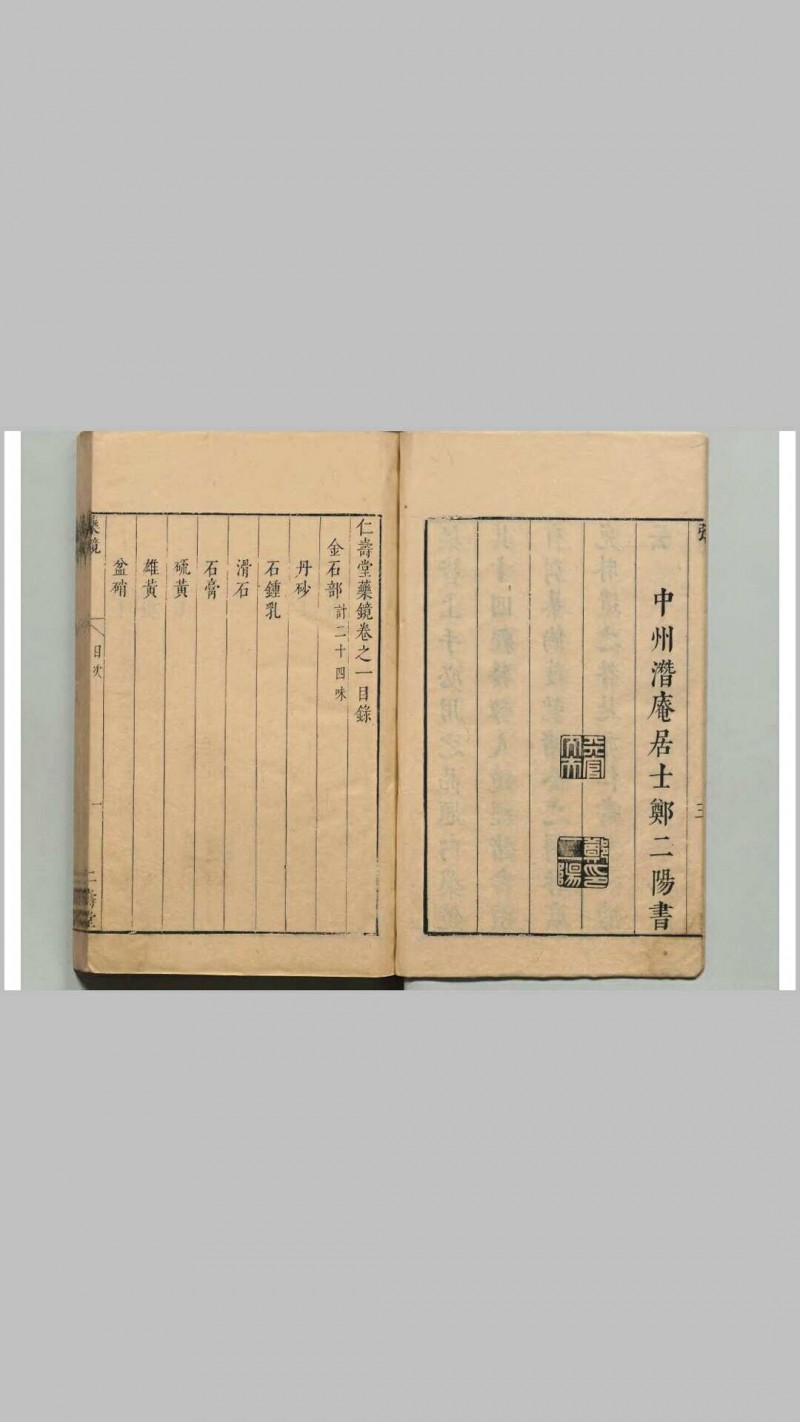 中州潛庵居士鄭二陽書
三
鄭二陽印
仁壽堂藥鏡卷之一目錄
金石部計二十四味
丹砂
石鍾乳
滑石
石膏
硫黃
雄黃
盆硝
藥鏡
目次
一
仁壽堂